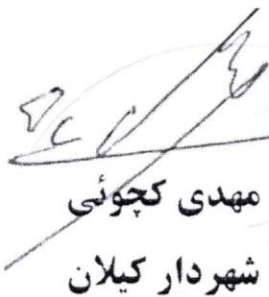 مهدی کچوئی
شهردار کیلان